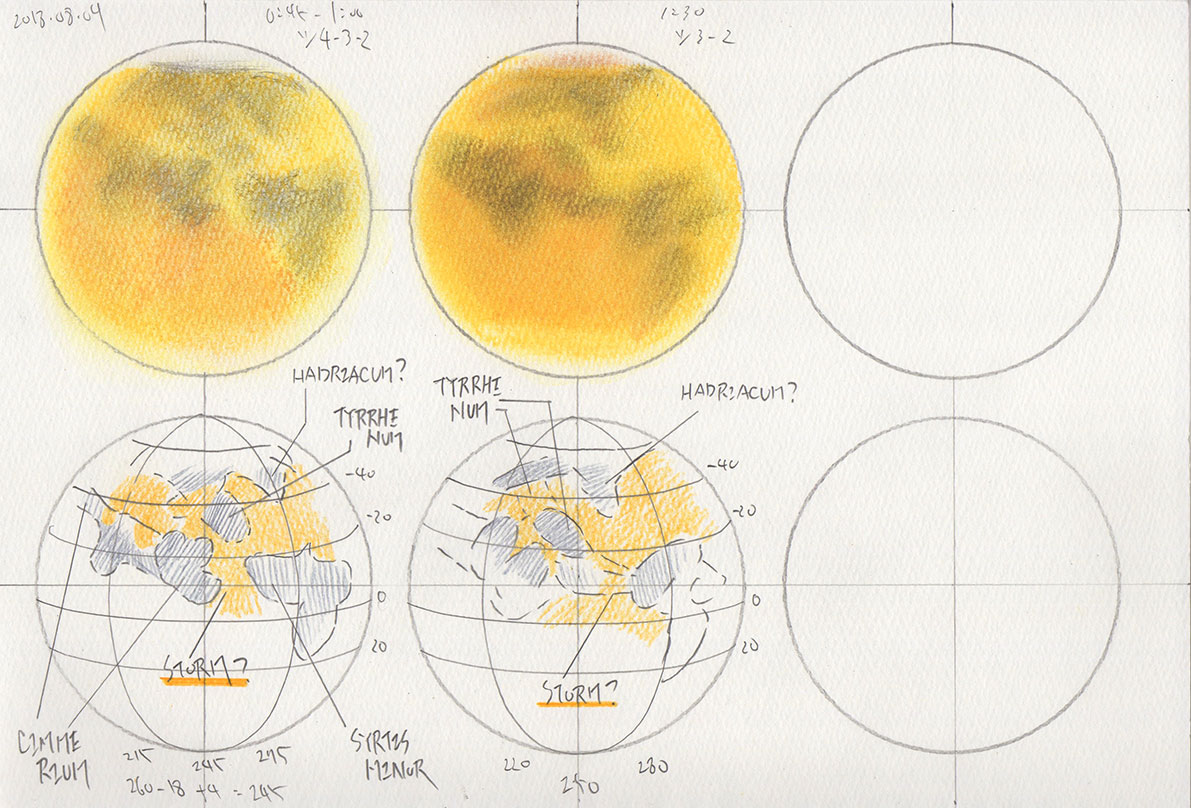 2018.08.04
0:45 - 1:00
4-3-2
1:30
3-2
HADRIACUM?
TYRRHE
NUM
-40
-20
0
20
STORM?
CIMME
RIUM
SYRTIS
MINOR
215
245
275
260-18 +4 = 245
TYRRHE
NUM
HADRIACUM?
-40
-20
0
20
STORM?
220
250
280